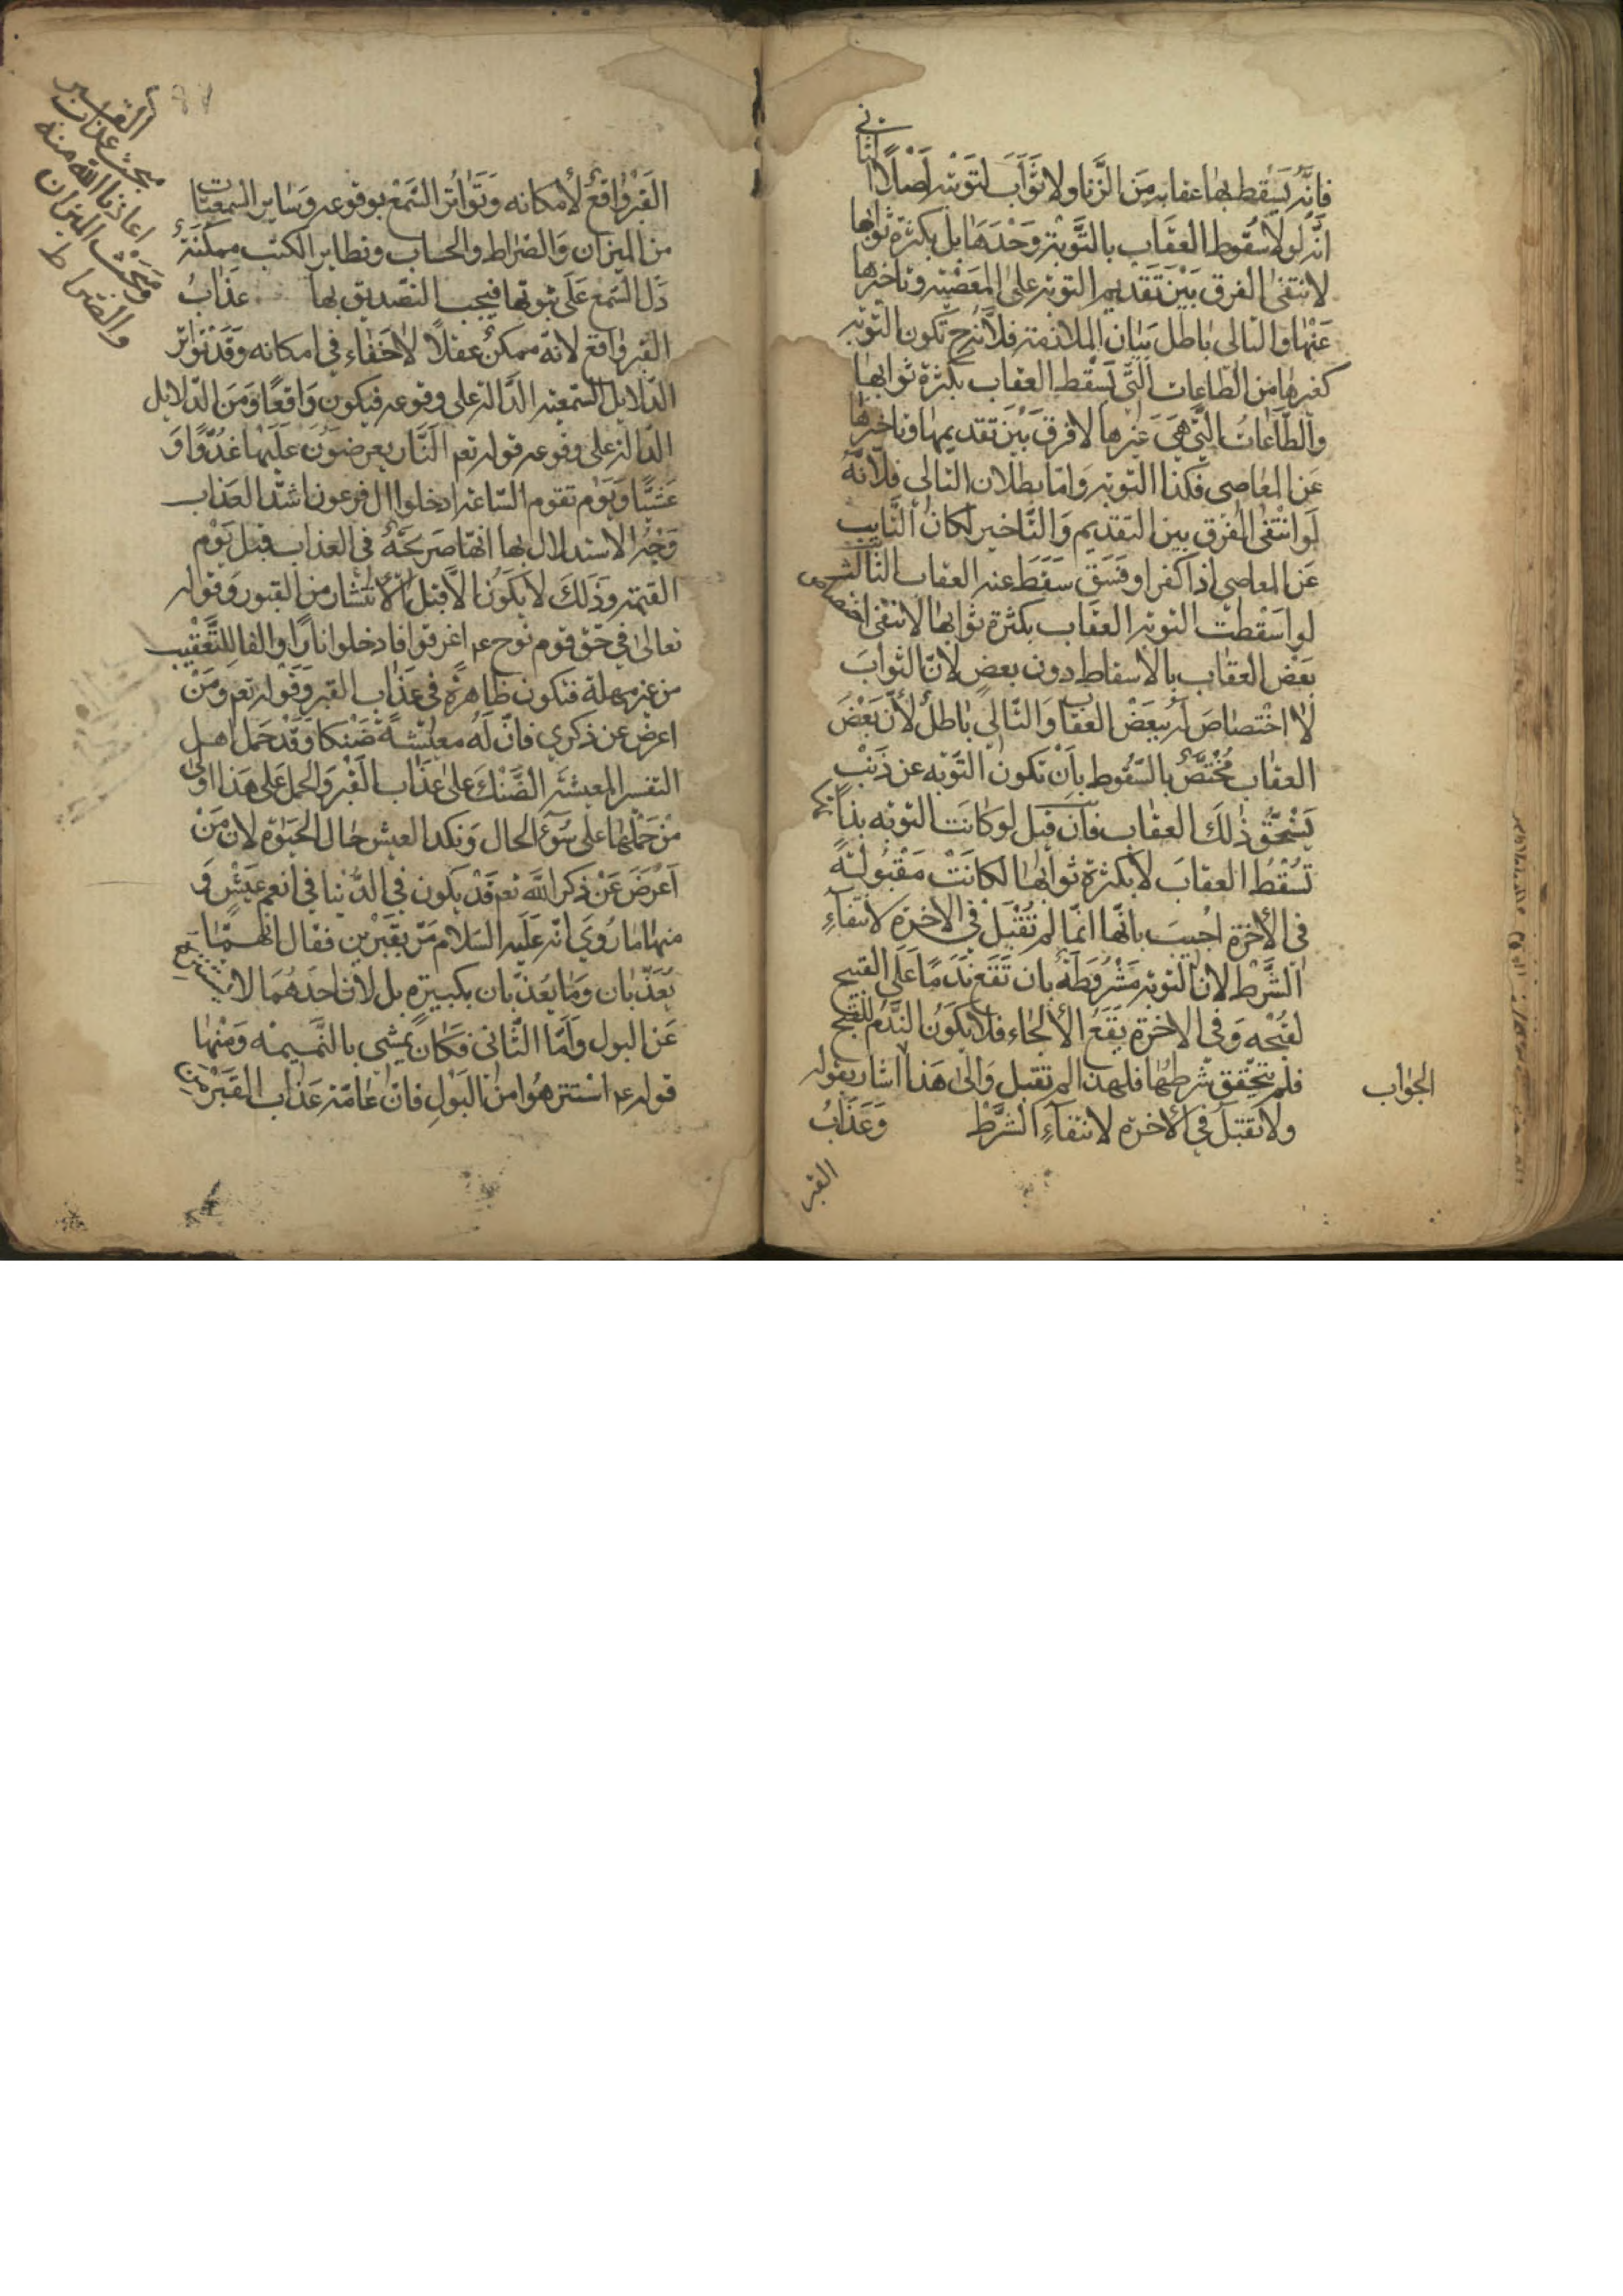 فانّه يسقط بها عقابه من الزنا ولا ثواب لتوبته اصلاً الثاني
انّه لولا سقوط العقاب بالتوبة وحدها بل بكثرة ثوابها
لانتفى الفرق بين تقديم التوبة على المعصية وتاخيرها
عنها والتالي باطل بيان الملازمة فلانه ح تكون التوبة
كغيرها من الطاعات التي تسقط العقاب بكثرة ثوابها
والطاعات التي هي غيرها لا فرق بين تقديمها وتاخيرها
عن المعاصي فكذا التوبة وامّا بطلان التالي فلانّه
لو انتفى الفرق بين التقديم والتاخير لكان التايب
عن المعاصي اذا كفر او فسق سقط عنه العقاب الثالث
لو اسقطت التوبة العقاب بكثرة ثوابها لانتفى اختصاص
بعض العقاب بالاسقاط دون بعض لانّ الثواب
لا اختصاص له ببعض العقاب والتالي باطل لانّ بعض
العقاب مختصّ بالسقوط بان تكون التوبه عن ذنب
يستحق ذلك العقاب فان قيل لو كانت التوبه بذاتها
تسقط العقاب لا بكثرة ثوابها لكانت مقبولة
في الاخرة اجيب بانّها انّما لم تقبل في الاخرة لانتفاء
الشرط لان التوبة مشروطة بان تقع ندماً على القبيح
لقبحه وفي الاخرة يقع الالجاء فلا يكون الندم للقبح
فلم يتحقق شرطها فلهذا لم تقبل والى هذا اشار بقوله
الجواب
ولا تقبل في الاخرة لانتفاء الشرط وعذاب
القبر
القبر واقع لامكانه وتواتر السمع بوقوعه وساير السمعيات
من الميزان والصراط والحساب وتطاير الكتب ممكنة
دل السمع على ثبوتها فيجب التصديق بها عذاب
القبر واقع لانه ممكن عقلاً لا خفاء في امكانه وقد تواتر
الدلايل السمعية الدالة على وقوعه فيكون واقعاً ومن الدلايل
الدالة على وقوعه قوله تعم النار يعرضون عليها غدوّا و
عشيّا ويوم تقوم الساعة ادخلوا ال فرعون اشدّ العذاب
وجه الاستدلال بها انها صريحة في العذاب قبل يوم
القيمة وذلك لا يكون الا قبل الانتشار من القبور وقوله
تعالى في حق قوم نوح عم اغرقوا فادخلوا نارا والفا للتعقيب
من غير مهلة فتكون ظاهرة في عذاب القبر وقوله تعم ومن
اعرض عن ذكري فانّ له معيشة ضنكا وقد حمل اهل
التفسير المعيشة الضنك على عذاب القبر والحمل على هذا اولى
من حملها على سوء الحال ونكد العيش حال الحيوة لان من
اعرض عن ذكر الله تعم قد يكون في الدنيا في انعم عيش و
منها ما روي انه عليه السلام مرّ بقبرين فقال انهما
يعذّبان وما يعذّبان بكبيرة بل لان احدهما لا يستنزه
عن البول وامّا الثاني فكان يمشي بالنميمه ومنها
قوله عم استنزهوا من البول فانّ عامّة عذاب القبر من
مبحث عذاب القبر
اعاذنا الله منه
ومبحث الميزان
والصراط